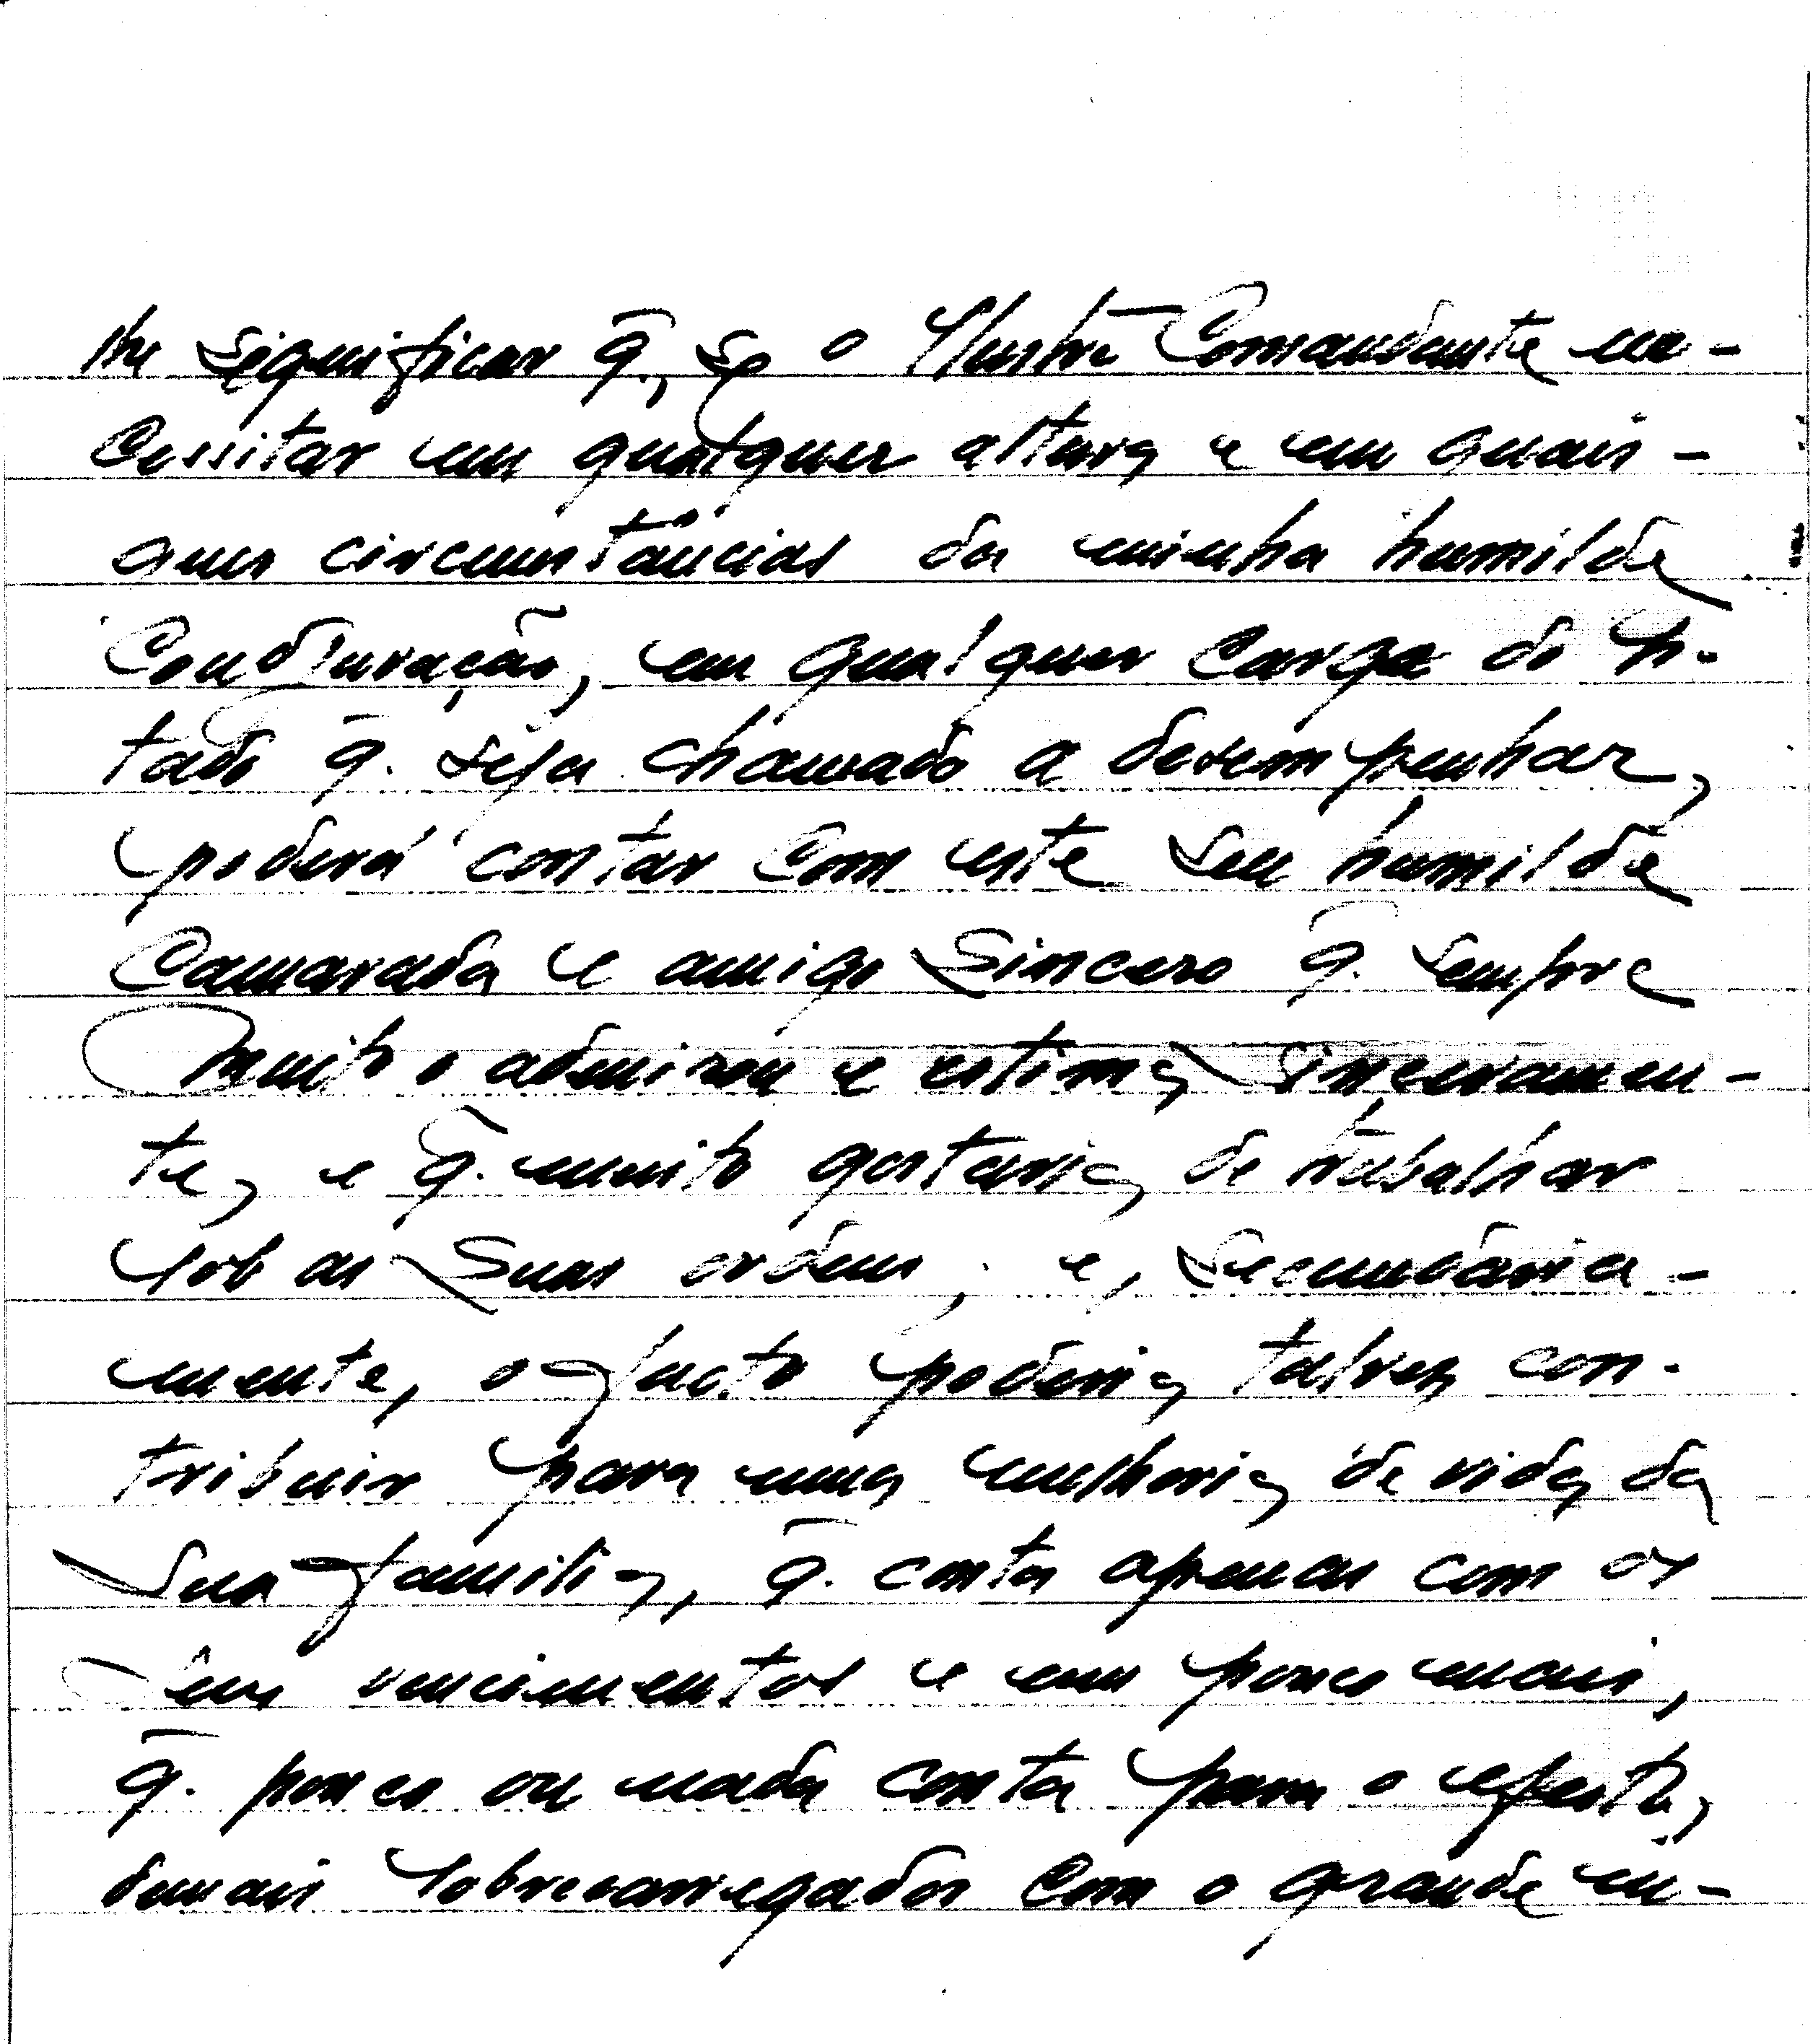 lhe significar q̄., se o Ilustre Comandante ne-
cessitar em qualquer altura e em quais-
quer circunstâncias da minha humilde
em qualquer cargo do
tado q̄. seja chamado a desempenhar,
poderá contar com este seu humilde
Camarada e amigo Sincero q̄. sempre
muito o admirou e estima sinceramen-
te, e q̄. muito gostaria de trabalhar
sob as Suas ordens; e, secundária-
mente, o facto poderia talvez con-
tribuir para uma melhoria de vida da
sua familia, q̄. conta apenas com os
seus vencimentos e um pouco mais,
q̄. pouco ou nada conta para o efeito,
demais sobrecarregados com o grande en-